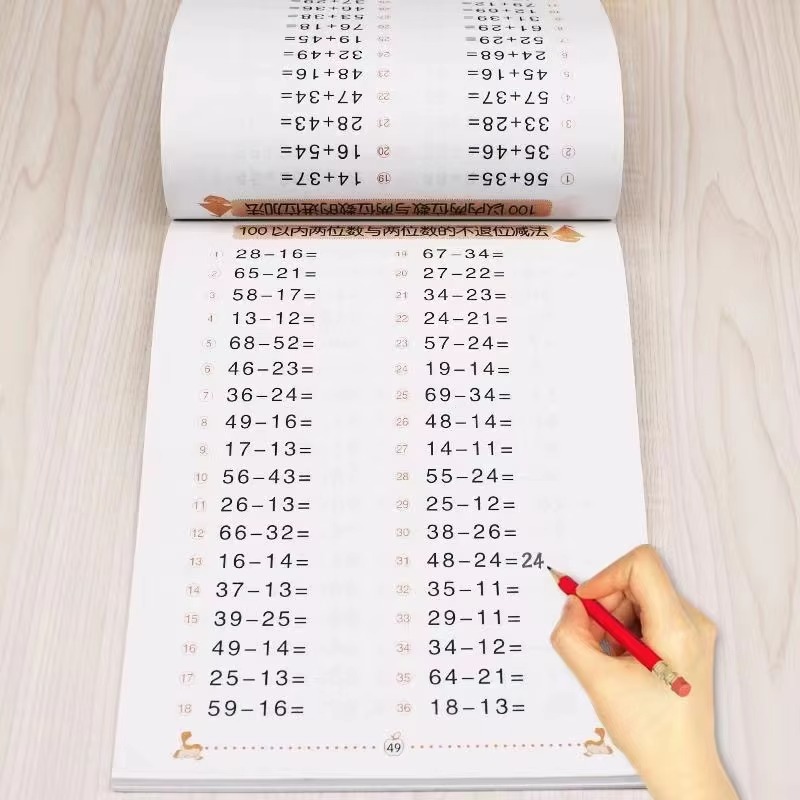 100以内两位数与两位数的进位加法
1 56+35= 19 14+37=
2 35+46= 20 16+54=
3 33+28= 21 28+43=
4 57+37= 22 47+34=
5 45+16= 23 48+16=
6 24+68= 24 32+49=
7 52+29= 25 19+45=
8 61+29= 26 76+18=
9 31+39= 27 53+38=
100以内两位数与两位数的不退位减法
1 28-16= 19 67-34=
2 65-21= 20 27-22=
3 58-17= 21 34-23=
4 13-12= 22 24-21=
5 68-52= 23 57-24=
6 46-23= 24 19-14=
7 36-24= 25 69-34=
8 49-16= 26 48-14=
9 17-13= 27 14-11=
10 56-43= 28 55-24=
11 26-13= 29 25-12=
12 66-32= 30 38-26=
13 16-14= 31 48-24=24
14 37-13= 32 35-11=
15 39-25= 33 29-11=
16 49-14= 34 34-12=
17 25-13= 35 64-21=
18 59-16= 36 18-13=
49